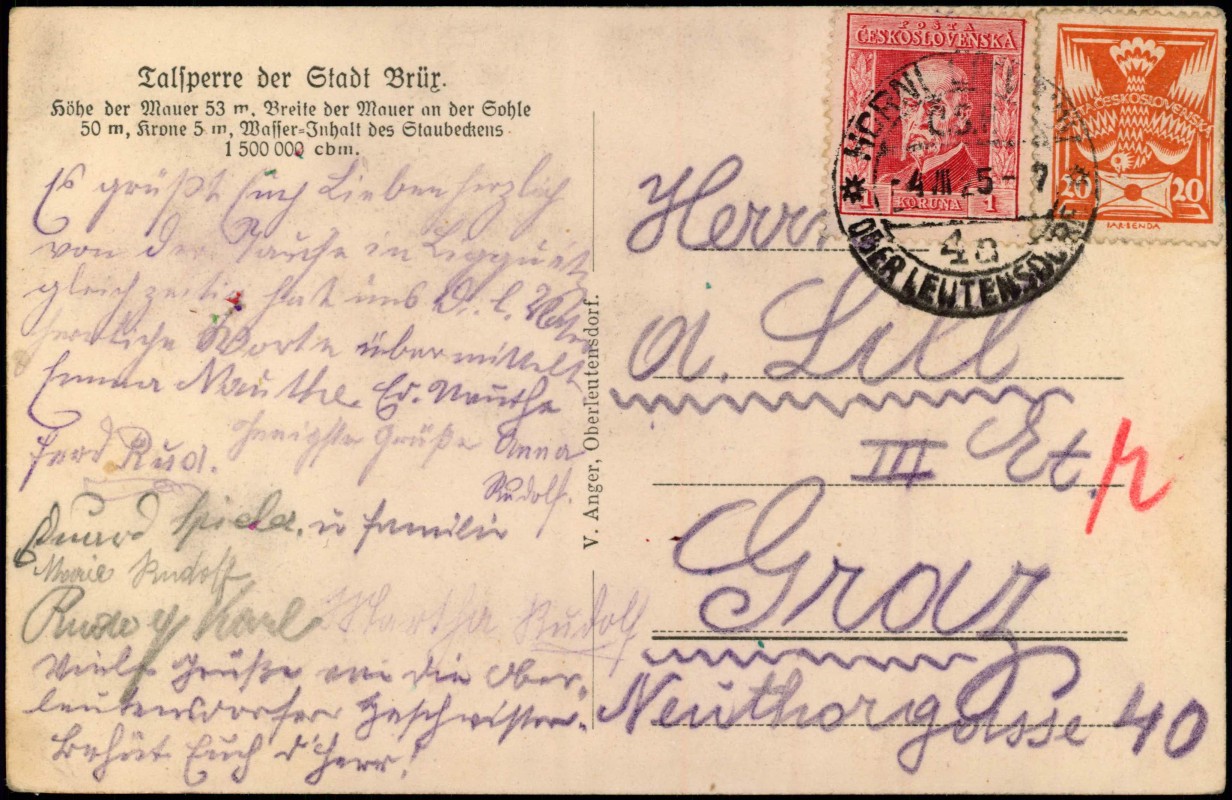 Talsperre der Stadt Brüx.
Höhe der Mauer 53 m, Breite der Mauer an der Sohle
50 m, Krone 5 m, Wasser=Inhalt des Staubeckens
1 500 000 cbm.
Es grüßt Euch Lieben herzlich
von der Taufe in
gleichzeitig hat uns Br. l.
herrliche Worte übermittelt
Emma Nauthe Ed. Nauthe
Innigste Grüße Anna
Ferd Rud. Rudolf.
Eduard u Familie
Marie Rudolf
Rudolf Karl Martha Rudolf
Viele Grüße an die Ober-
leutensdorfer Geschwister.
Behüt Euch d' Herr!
V. Anger, Oberleutensdorf.
POŠTA
ČESKOSLOVENSKÁ
1 KORUNA 1
POŠTA ČESKOSLOVENSKÁ
20 20
HORNÍ
ČSR
-4 III 25-
4a
OBER LEUTENSDORF
Herrn
A. Lill
III Et.
Graz
Neuthorgasse 40